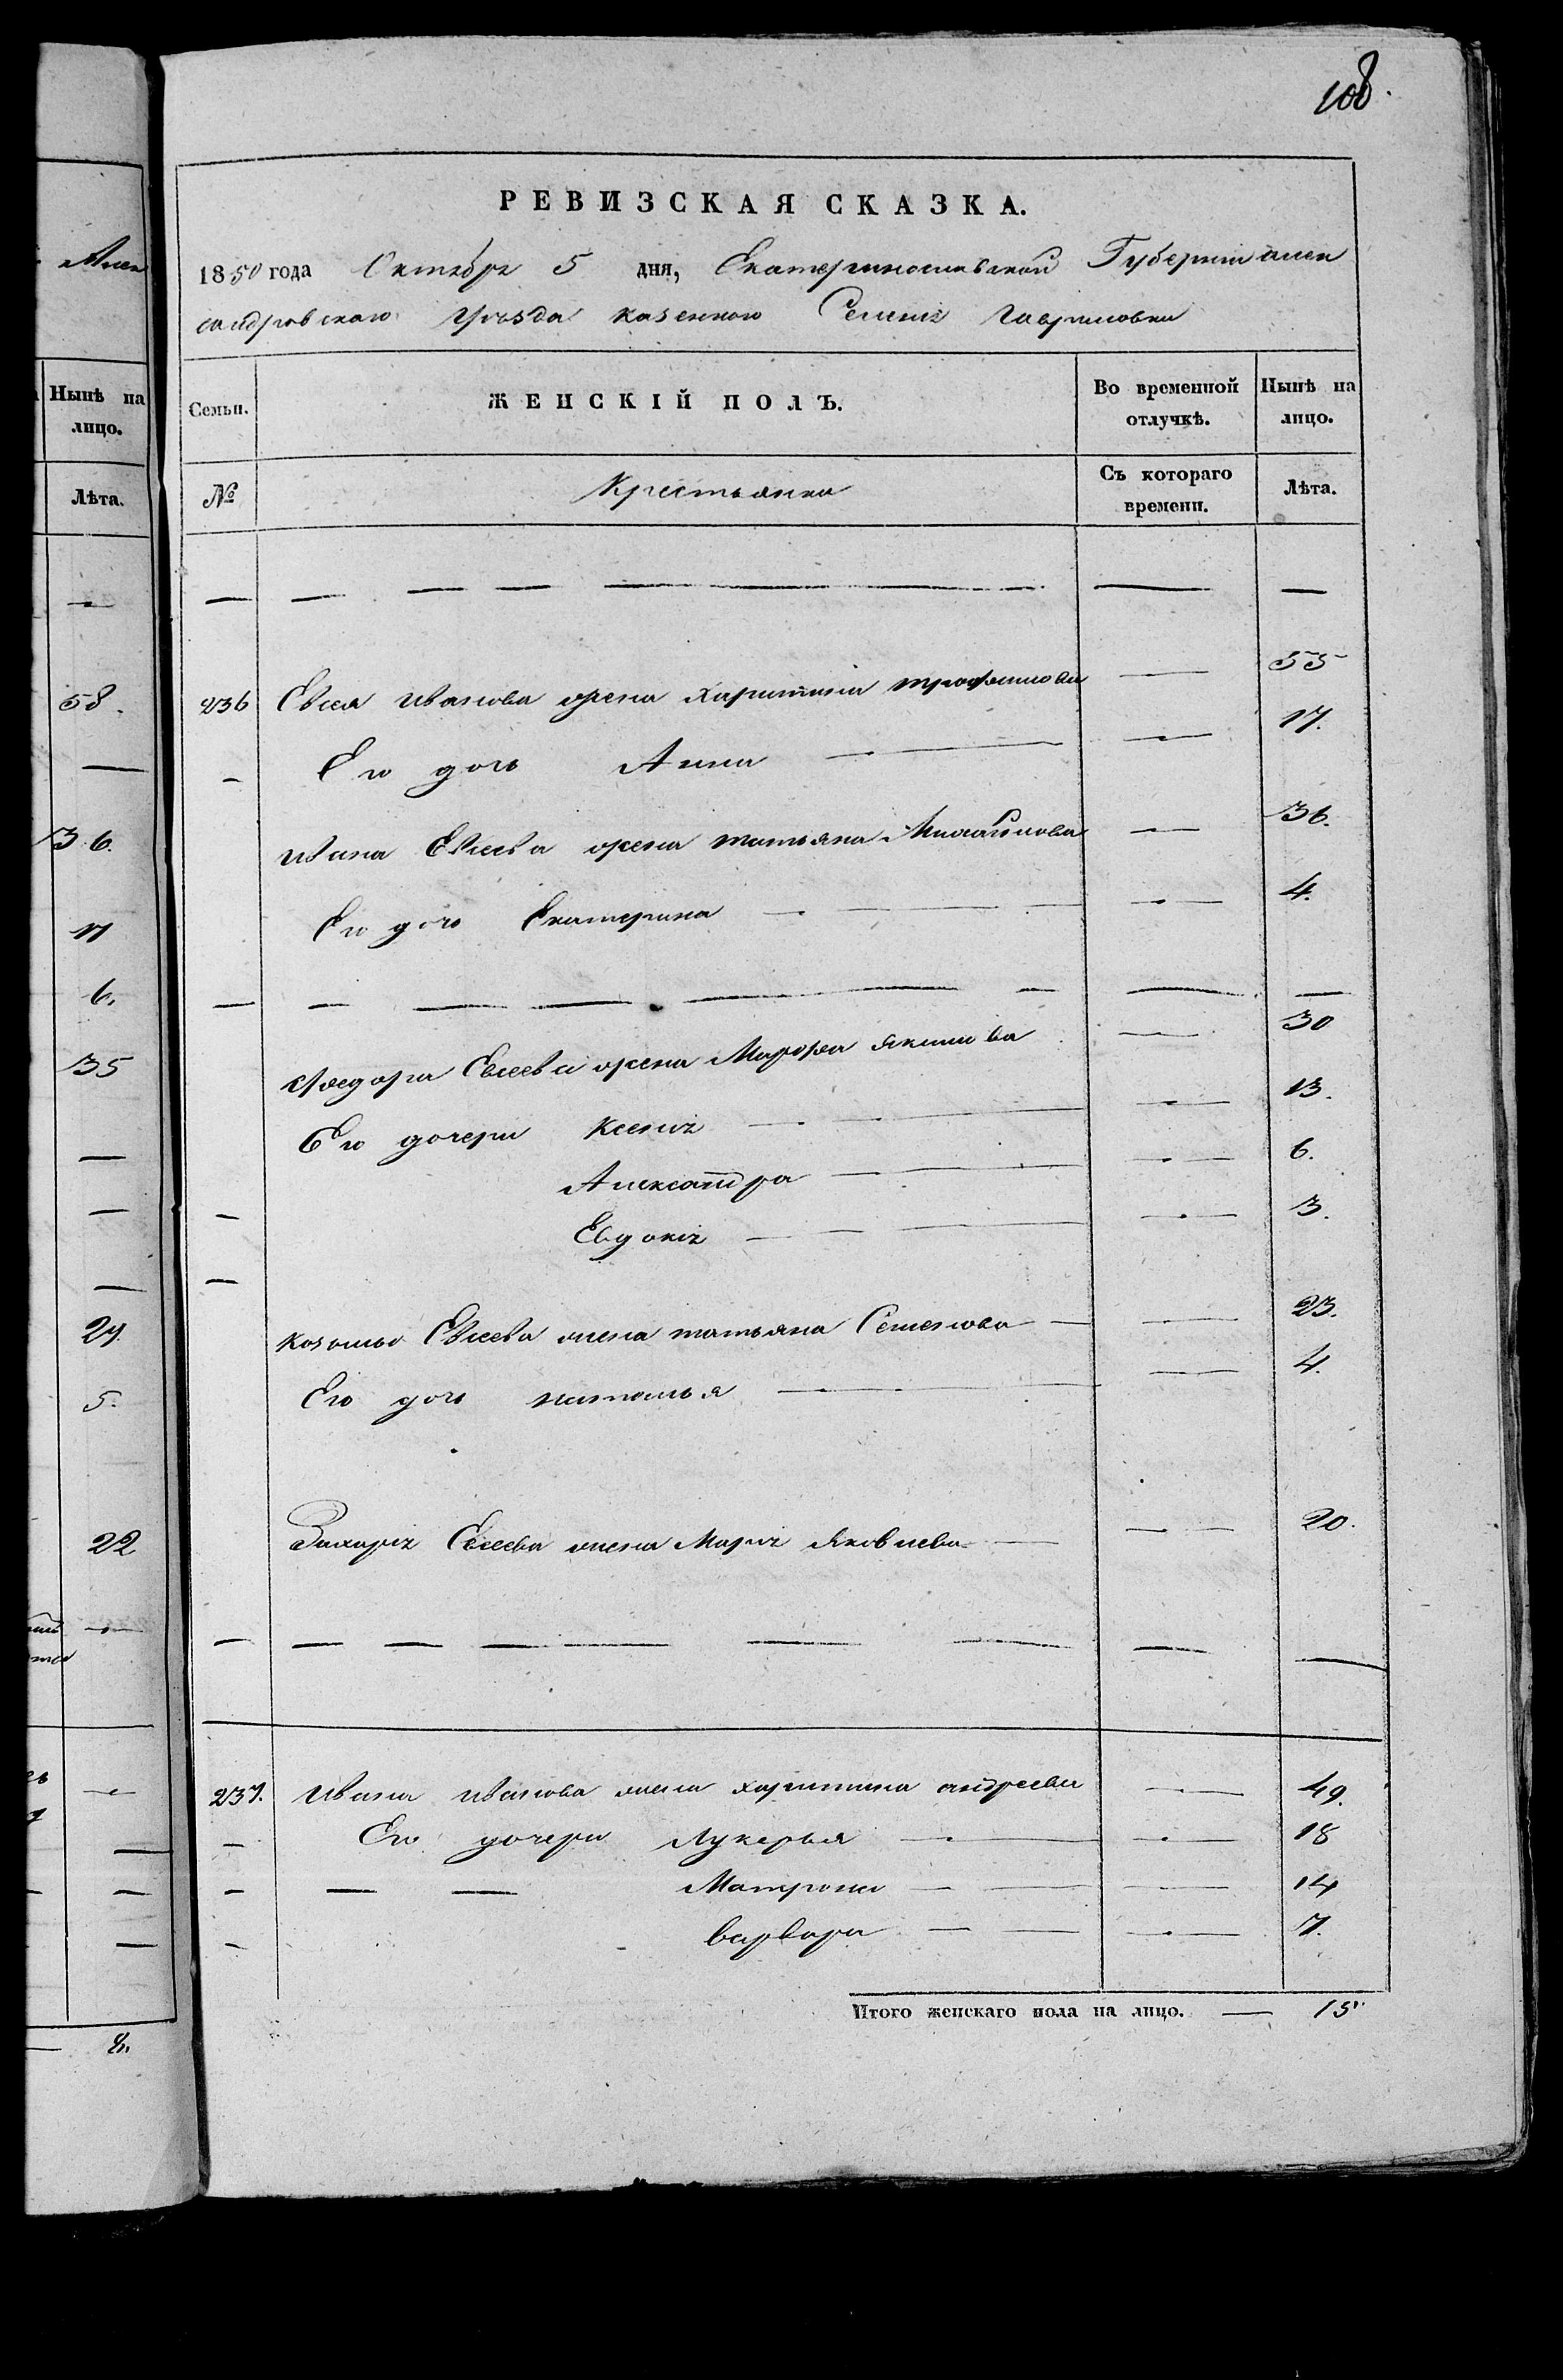 108.
РЕВИЗСКАЯ СКАЗКА.
1850 года Октября 5 дня, Екатеринославской Губернии Алек
сандровского Уезда казенного Селения Гавриловки
Семьи. ЖЕНСКІЙ ПОЛЪ. Во временной отлучкѣ. Нынѣ на лицо.
№ Крестьянка Съ котораго времени. Лѣта.
236 Евсея Иванова жена Харитина Трофимова — 55
Его дочь Анна — 17.
Ивана Евсеева жена татьяна Михайлова — 36.
Его дочь Екатерина — 4.
Федора Евсеева жена Марфа Якимова — 30
Его дочери Ксения — 13.
Александра — 6.
Евдокия — 3.
козьмы Евсеева жена татьяна Семенова — 23.
Его дочь наталья — 4.
Захария Евсеева жена Мария Яковлева — 20.
237. Ивана Иванова жена харитина андреева — 49.
Его дочери Лукерья — 18
Матрона — 14
варвара — 7.
Итого женскаго пола на лицо. — 15
Алек
Нынѣ на
лицо.
Лѣта.
58.
36.
11
6.
35
27.
5.
22
8.